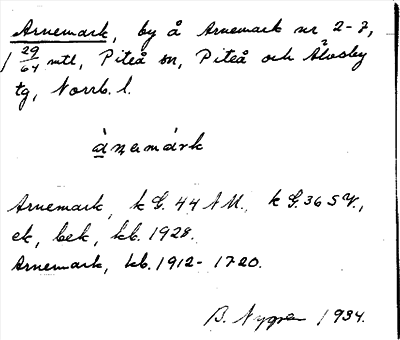 Arnemark, by å Arnemark nr 2-7,
1 29/64 mtl, Piteå sn, Piteå och Älvsby
tg, Norrb. l.
ànẹmárk
Arnemark, k G. 44 AM. k G. 36 SV.,
ek, bek, kb. 1928.
Arnemark, kb. 1912-1720.
B. Nygren 1934.